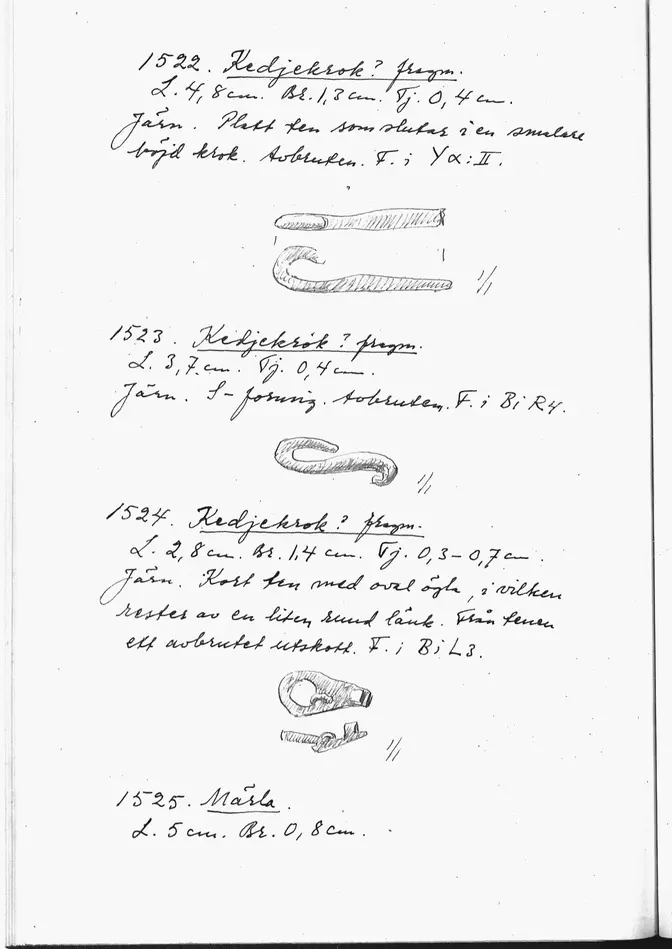 1522. Kedjekrok? fragm.
L. 4,8 cm. Br. 1,3 cm. Tj. 0,4 cm.
Järn. Platt ten som slutar i en smalare
böjd krok. Avbruten. F. i Yα:II.
1/1
1523. Kedjekrok? fragm.
L. 3,7 cm. Tj. 0,4 cm.
Järn. S-formig. Avbruten. F. i BiR4.
1/1
1524. Kedjekrok? fragm.
L. 2,8 cm. Br. 1,4 cm. Tj. 0,3-0,7 cm.
Järn. Kort ten med oval ögla, i vilken
rester av en liten rund länk. Från tenen
ett avbrutet utskott. F. i BiL3.
1/1
1525. Märla.
L. 5 cm. Br. 0,8 cm.